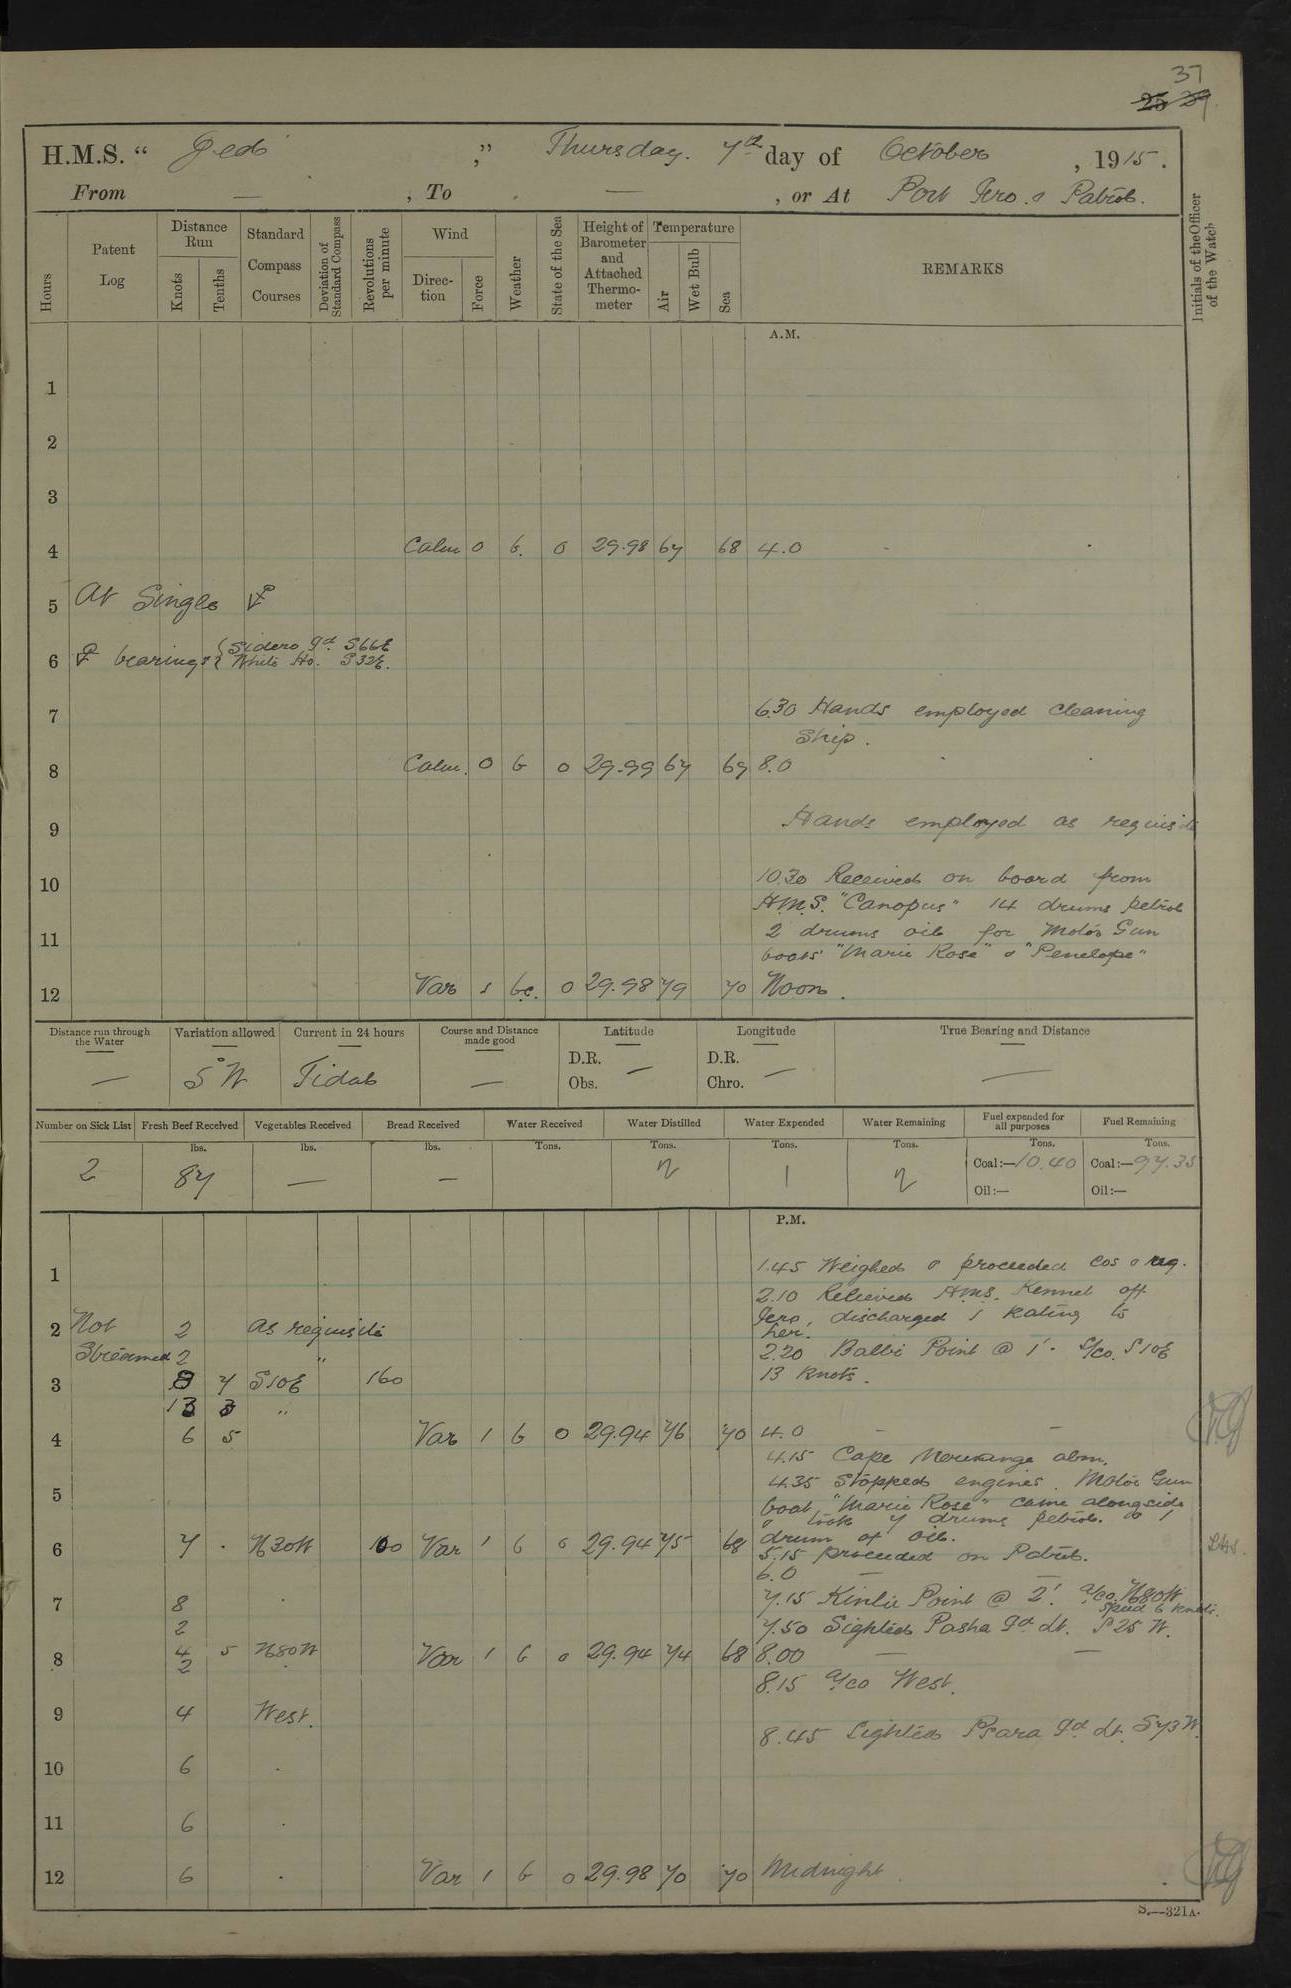 37
25 29
H.M.S. " Jed ," Thursday. 7th day of October , 1915.
From — , To — , or At Port Iero. & Patrol.
Hours
Patent Log
Distance Run
Knots
Tenths
Standard Compass Courses
Deviation of Standard Compass
Revolutions per minute
Wind
Direction
Force
Weather
State of the Sea
Height of Barometer and Attached Thermometer
Temperature
Air
Wet Bulb
Sea
REMARKS
Initials of the Officer of the Watch
A.M.
1
2
3
4 Calm 0 b. 0 29.98 67 68 4.0
5 At Single
6 bearings { Sidero Id. S66E
White Ho. S32E.
7 6.30 Hands employed cleaning
Ship.
8 Calm. 0 b 0 29.99 67 69 8.0
9 Hands employed as requisite
10 10.30 Received on board from
H.M.S. "Canopus" 14 drums petrol
11 2 drums oil for Motor Gun
boats "Marie Rose" & "Penelope"
12 Var 1 bc. 0 29.98 79 70 Noon.
Distance run through the Water
Variation allowed
Current in 24 hours
Course and Distance made good
Latitude
Longitude
True Bearing and Distance
— 5°W Tidal — D.R. Obs. — D.R. Chro. — —
Number on Sick List
Fresh Beef Received
Vegetables Received
Bread Received
Water Received
Water Distilled
Water Expended
Water Remaining
Fuel expended for all purposes
Fuel Remaining
lbs. lbs. lbs. Tons. Tons. Tons. Tons. Tons. Tons.
2 87 — — 1 Coal:—10.40 Coal:—97.35
Oil:— Oil:—
P.M.
1 1.45 Weighed & proceeded Cos & req.
2.10 Relieved H.M.S. Kennet off
2 Not 2 as requisite Iero, discharged 1 Rating to
her.
Streamed 2 " 2.20 Balbi Point @ 1'. S/co. S10E
3 8 7 S10E 160 13 knots.
13 3 "
4 6 5 Var 1 b 0 29.94 76 70 4.0 — —
4.15 Cape abm.
4.35 Stopped engines. Motor Gun
5 boat, "Marie Rose" came alongside
& took 7 drums petrol. & 1
6 7 . N30W 100 Var 1 b 0 29.94 75 68 drum of oil.
5.15 proceeded on Patrol.
6.0 —
7 8 7.15 Kinlie Point @ 2'. a/co. N80W
speed 6 knots.
2 7.50 Sighted Pasha Id. Lt. S25W.
8 4 5 N80W Var 1 b 0 29.94 74 68 8.00 — —
2 8.15 a/co West.
9 4 West.
8.45 Sighted Psara Id. Lt. S73W.
10 6 .
11 6 .
12 6 . Var 1 b 0 29.98 70 70 Midnight
S.—321A.